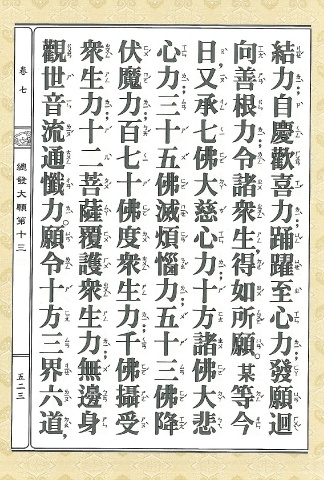 結力；自慶歡喜力；踊躍至心力；發願迴
向善根力；令諸衆生，得如所願。某等今
日，又承七佛大慈心力；十方諸佛大悲
心力；三十五佛滅煩惱力；五十三佛降
伏魔力；百七十佛度衆生力；千佛攝受
衆生力；十二菩薩覆護衆生力；無邊身
觀世音流通懺力。願令十方三界六道，
卷七
總發大願第十三
五二三